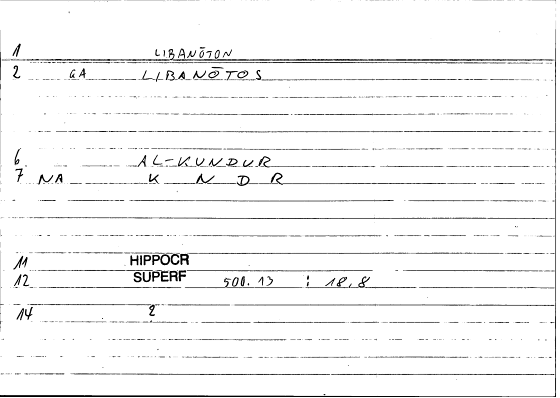 1 LIBANŌTON
2 GA LIBANŌTOS
6 AL-KUNDUR
7 NA K N D R
11 HIPPOCR
12 SUPERF 500.13 : 18,8
14 2